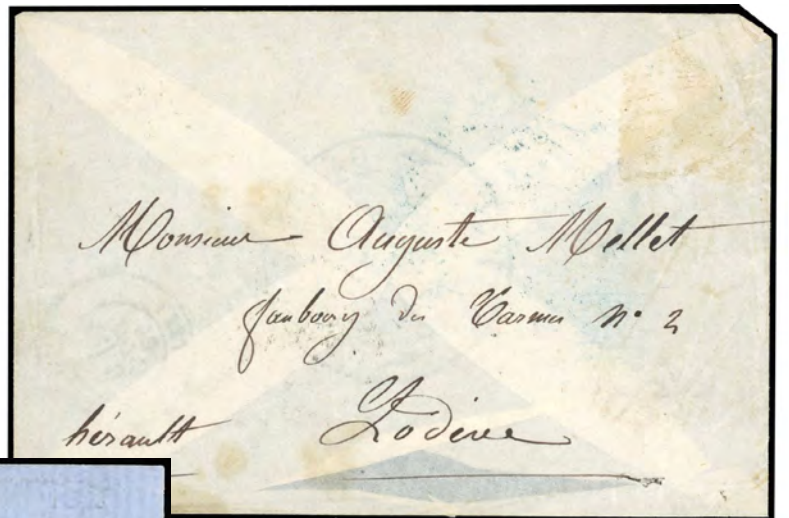 Monsieur Auguste Mellet
faubourg des Carmes n° 2
hérault Lodève